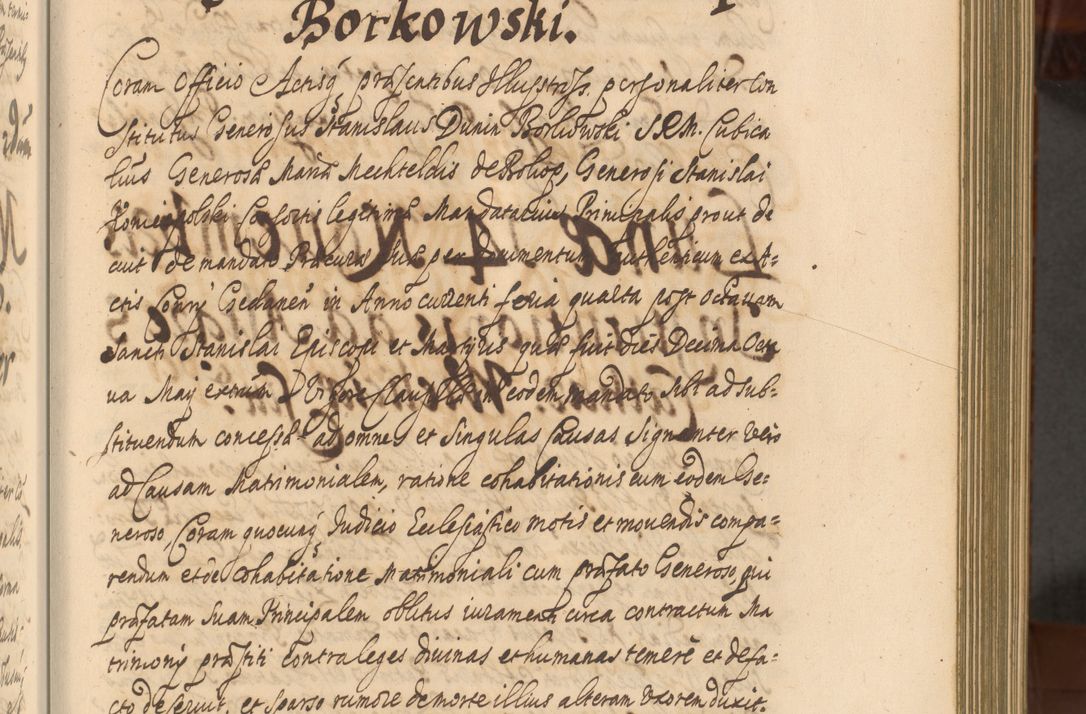 Borkowski.
Coram Officio Actisq́ꝫ præsentibus Illustriss. personaliter con
stitutus Generosus Stanislaus Dunin Borkowski S.R.M. Cubica
rius Generosæ Mariæ Mechteldis de Bokop, Generosi Stanislai
Koniecpolski Consortis legitimæ Mandatarius Principalis prout de
cuit de mandato Procurae suæ per Documentum authenticum ex A=
ctis Consÿ Gedanen̄ in Anno currenti feria quarta post octavam
Sancti Stanislai Episcopi et Martyris quæ fuit dies Decima Octa
va Maÿ extractum Vigore Clausulæ in eodem mandato sibi ad sub-
stituendum concessæ ad omnes et singulas Causas signanter vero
ad Causam Matrimonialem, ratione cohabitationis cum eodem Ge=
neroso, Coram quocunq́ꝫ Judicio Ecclesiastico motis et movendis compa=
rendum et de Cohabitatione Matrimoniali cum præfato Generoso, qui
præfatam suam Principalem oblitus iuramenti circa contractum Ma
trimonÿ præstiti contra leges divinas et humanas temerè et de fa=
cto deseruit, et sparso rumore de morte illius alteram uxorem duxit.